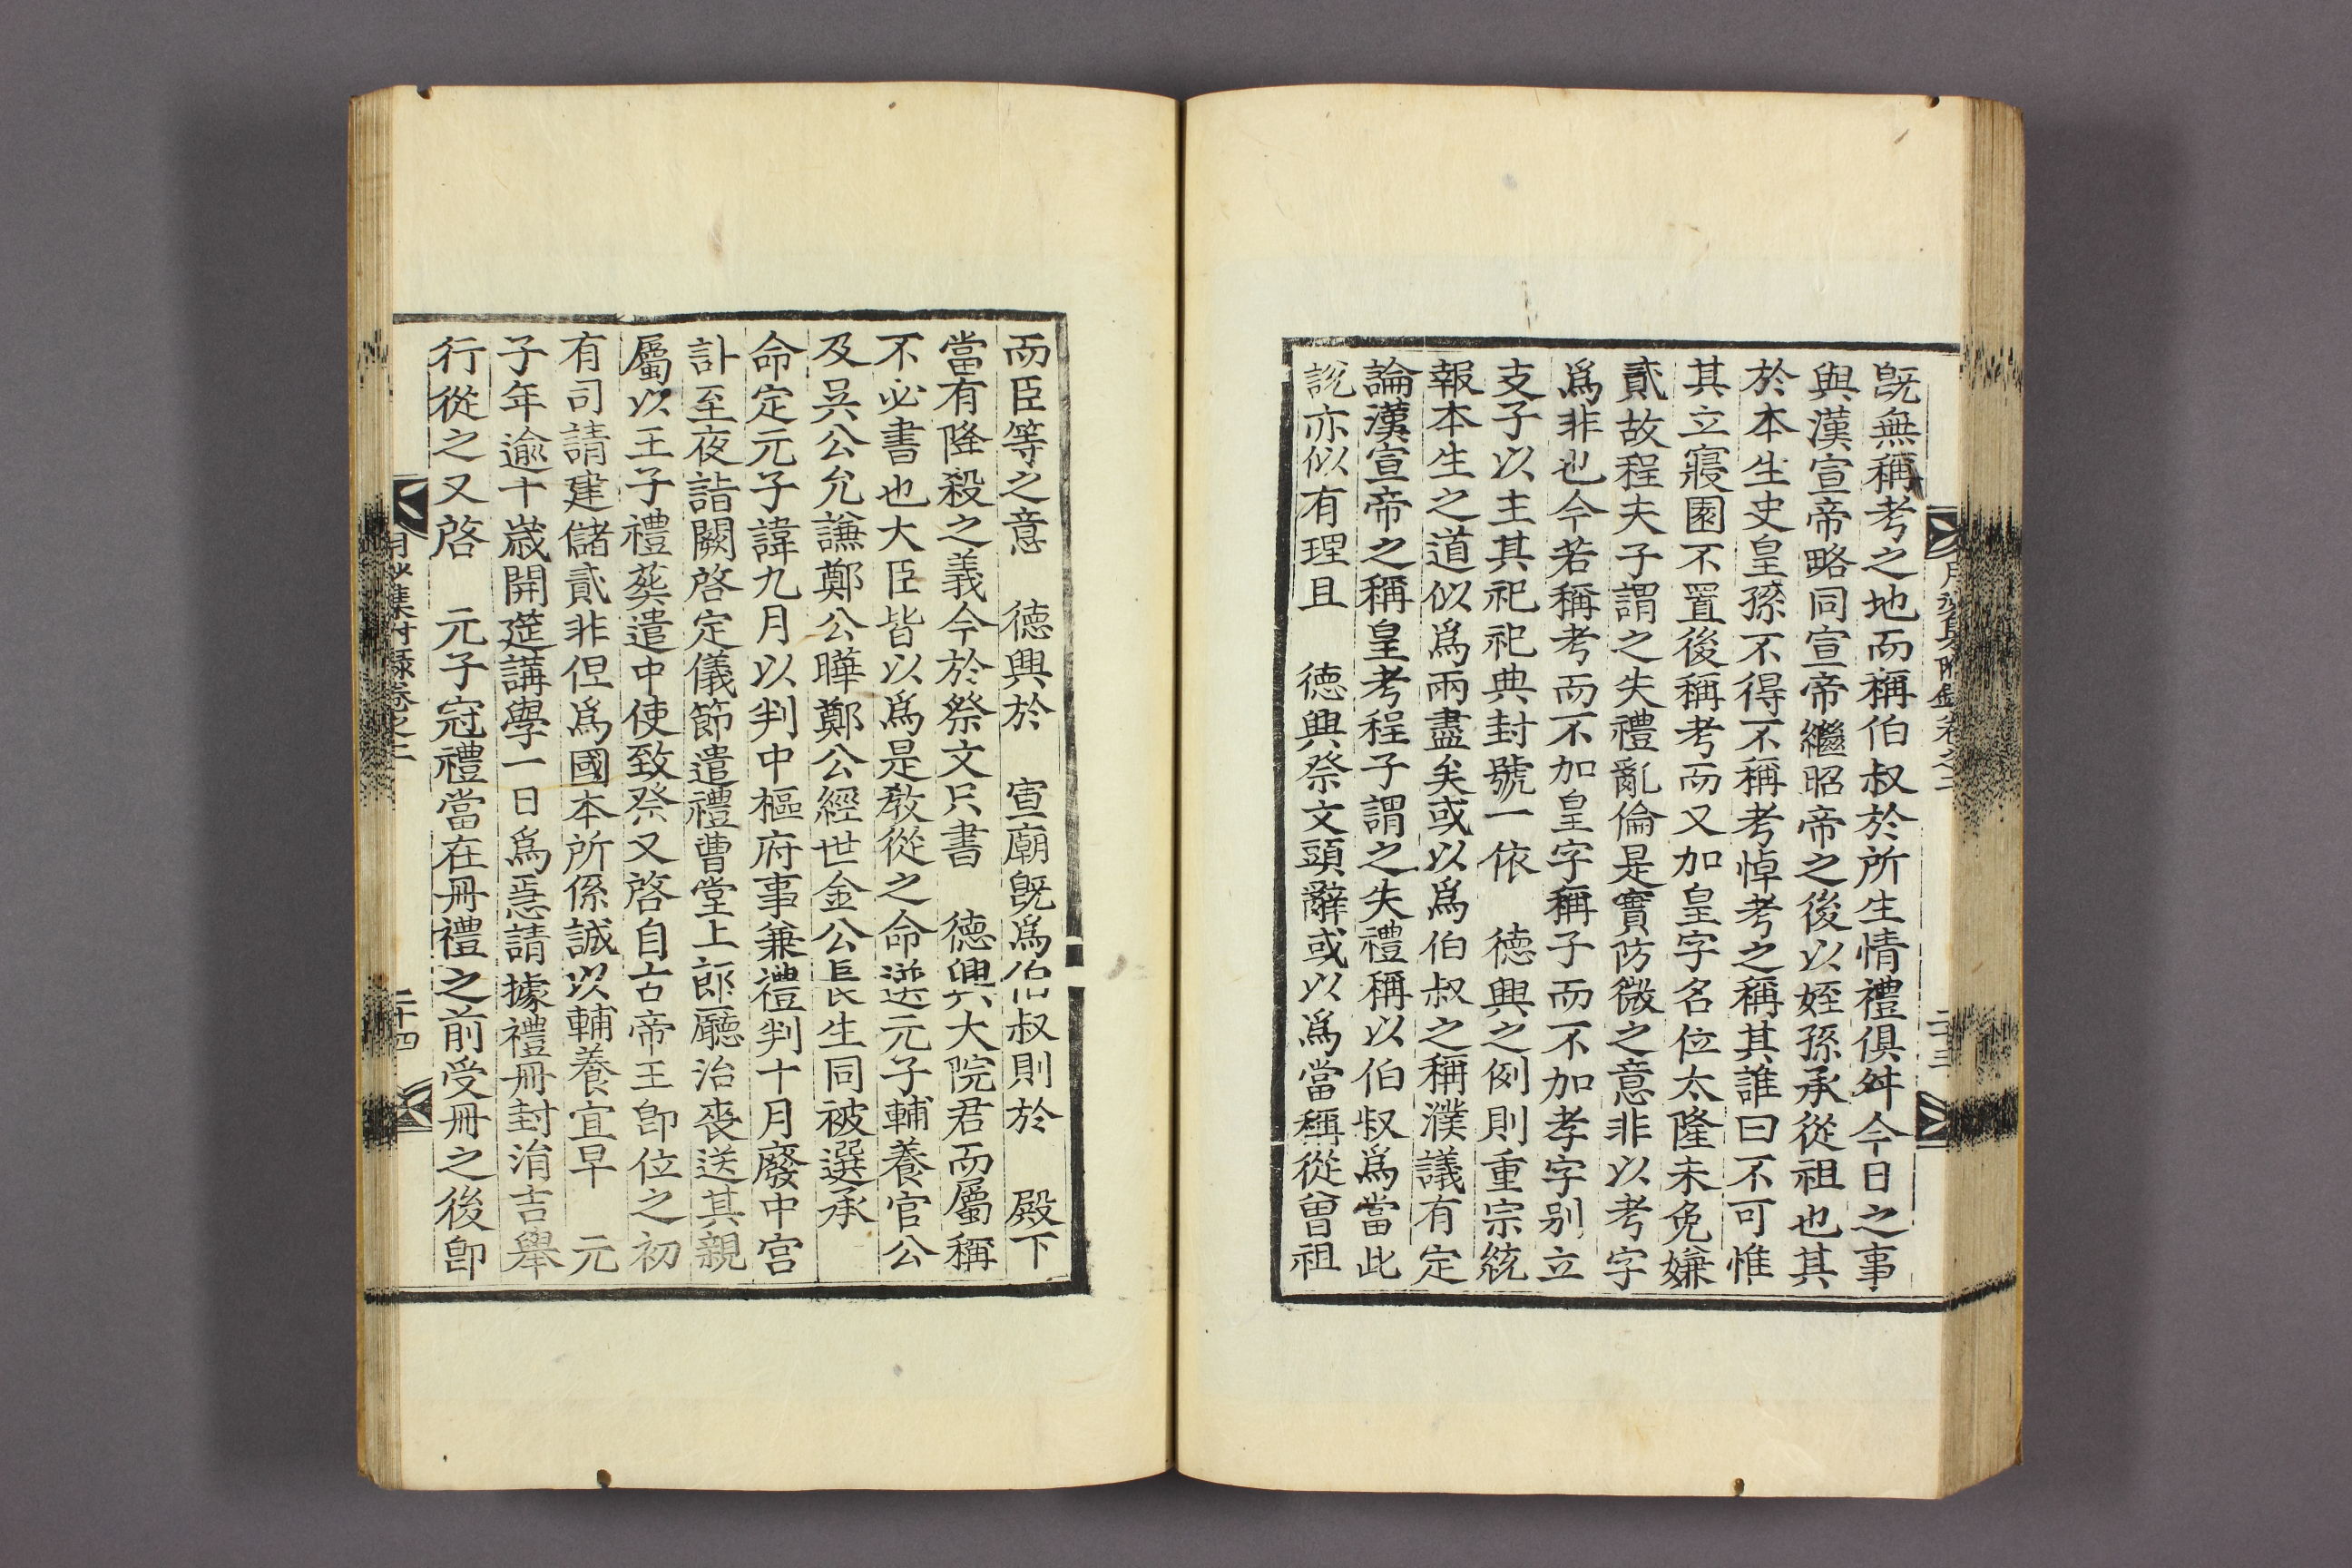 旣無稱考之地而稱伯叔於所生情禮俱舛今日之事
與漢宣帝略同宣帝繼昭帝之後以姪孫承從祖也其
於本生史皇孫不得不稱考悼考之稱其誰曰不可惟
其立寢園不置後稱考而又加皇字名位太隆未免嫌
貳故程夫子謂之失禮亂倫是實防微之意非以考字
爲非也今若稱考而不加皇字稱子而不加孝字別立
支子以主其祀祀典封號一依 德興之例則重宗統
報本生之道似爲兩盡矣或以爲伯叔之稱濮議有定
論漢宣帝之稱皇考程子謂之失禮稱以伯叔爲當此
說亦似有理且 德興祭文頭辭或以爲當稱從曾祖
而臣等之意 德興於 宣廟旣爲伯叔則於 殿下
當有降殺之義今於祭文只書 德興大院君而屬稱
不必書也大臣皆以爲是敎從之命選元子輔養官公
及吳公允謙鄭公曄鄭公經世金公長生同被選承
命定元子諱九月以判中樞府事兼禮判十月廢中宮
訃至夜詣闕啓定儀節遣禮曹堂上郎廳治喪送其親
屬以王子禮葬遣中使致祭又啓自古帝王卽位之初
有司請建儲貳非但爲國本所係誠以輔養宜早 元
子年逾十歲開筵講學一日爲急請據禮冊封涓吉舉
行從之又啓 元子冠禮當在冊禮之前受冊之後卽
月沙集附錄卷之二
二十四